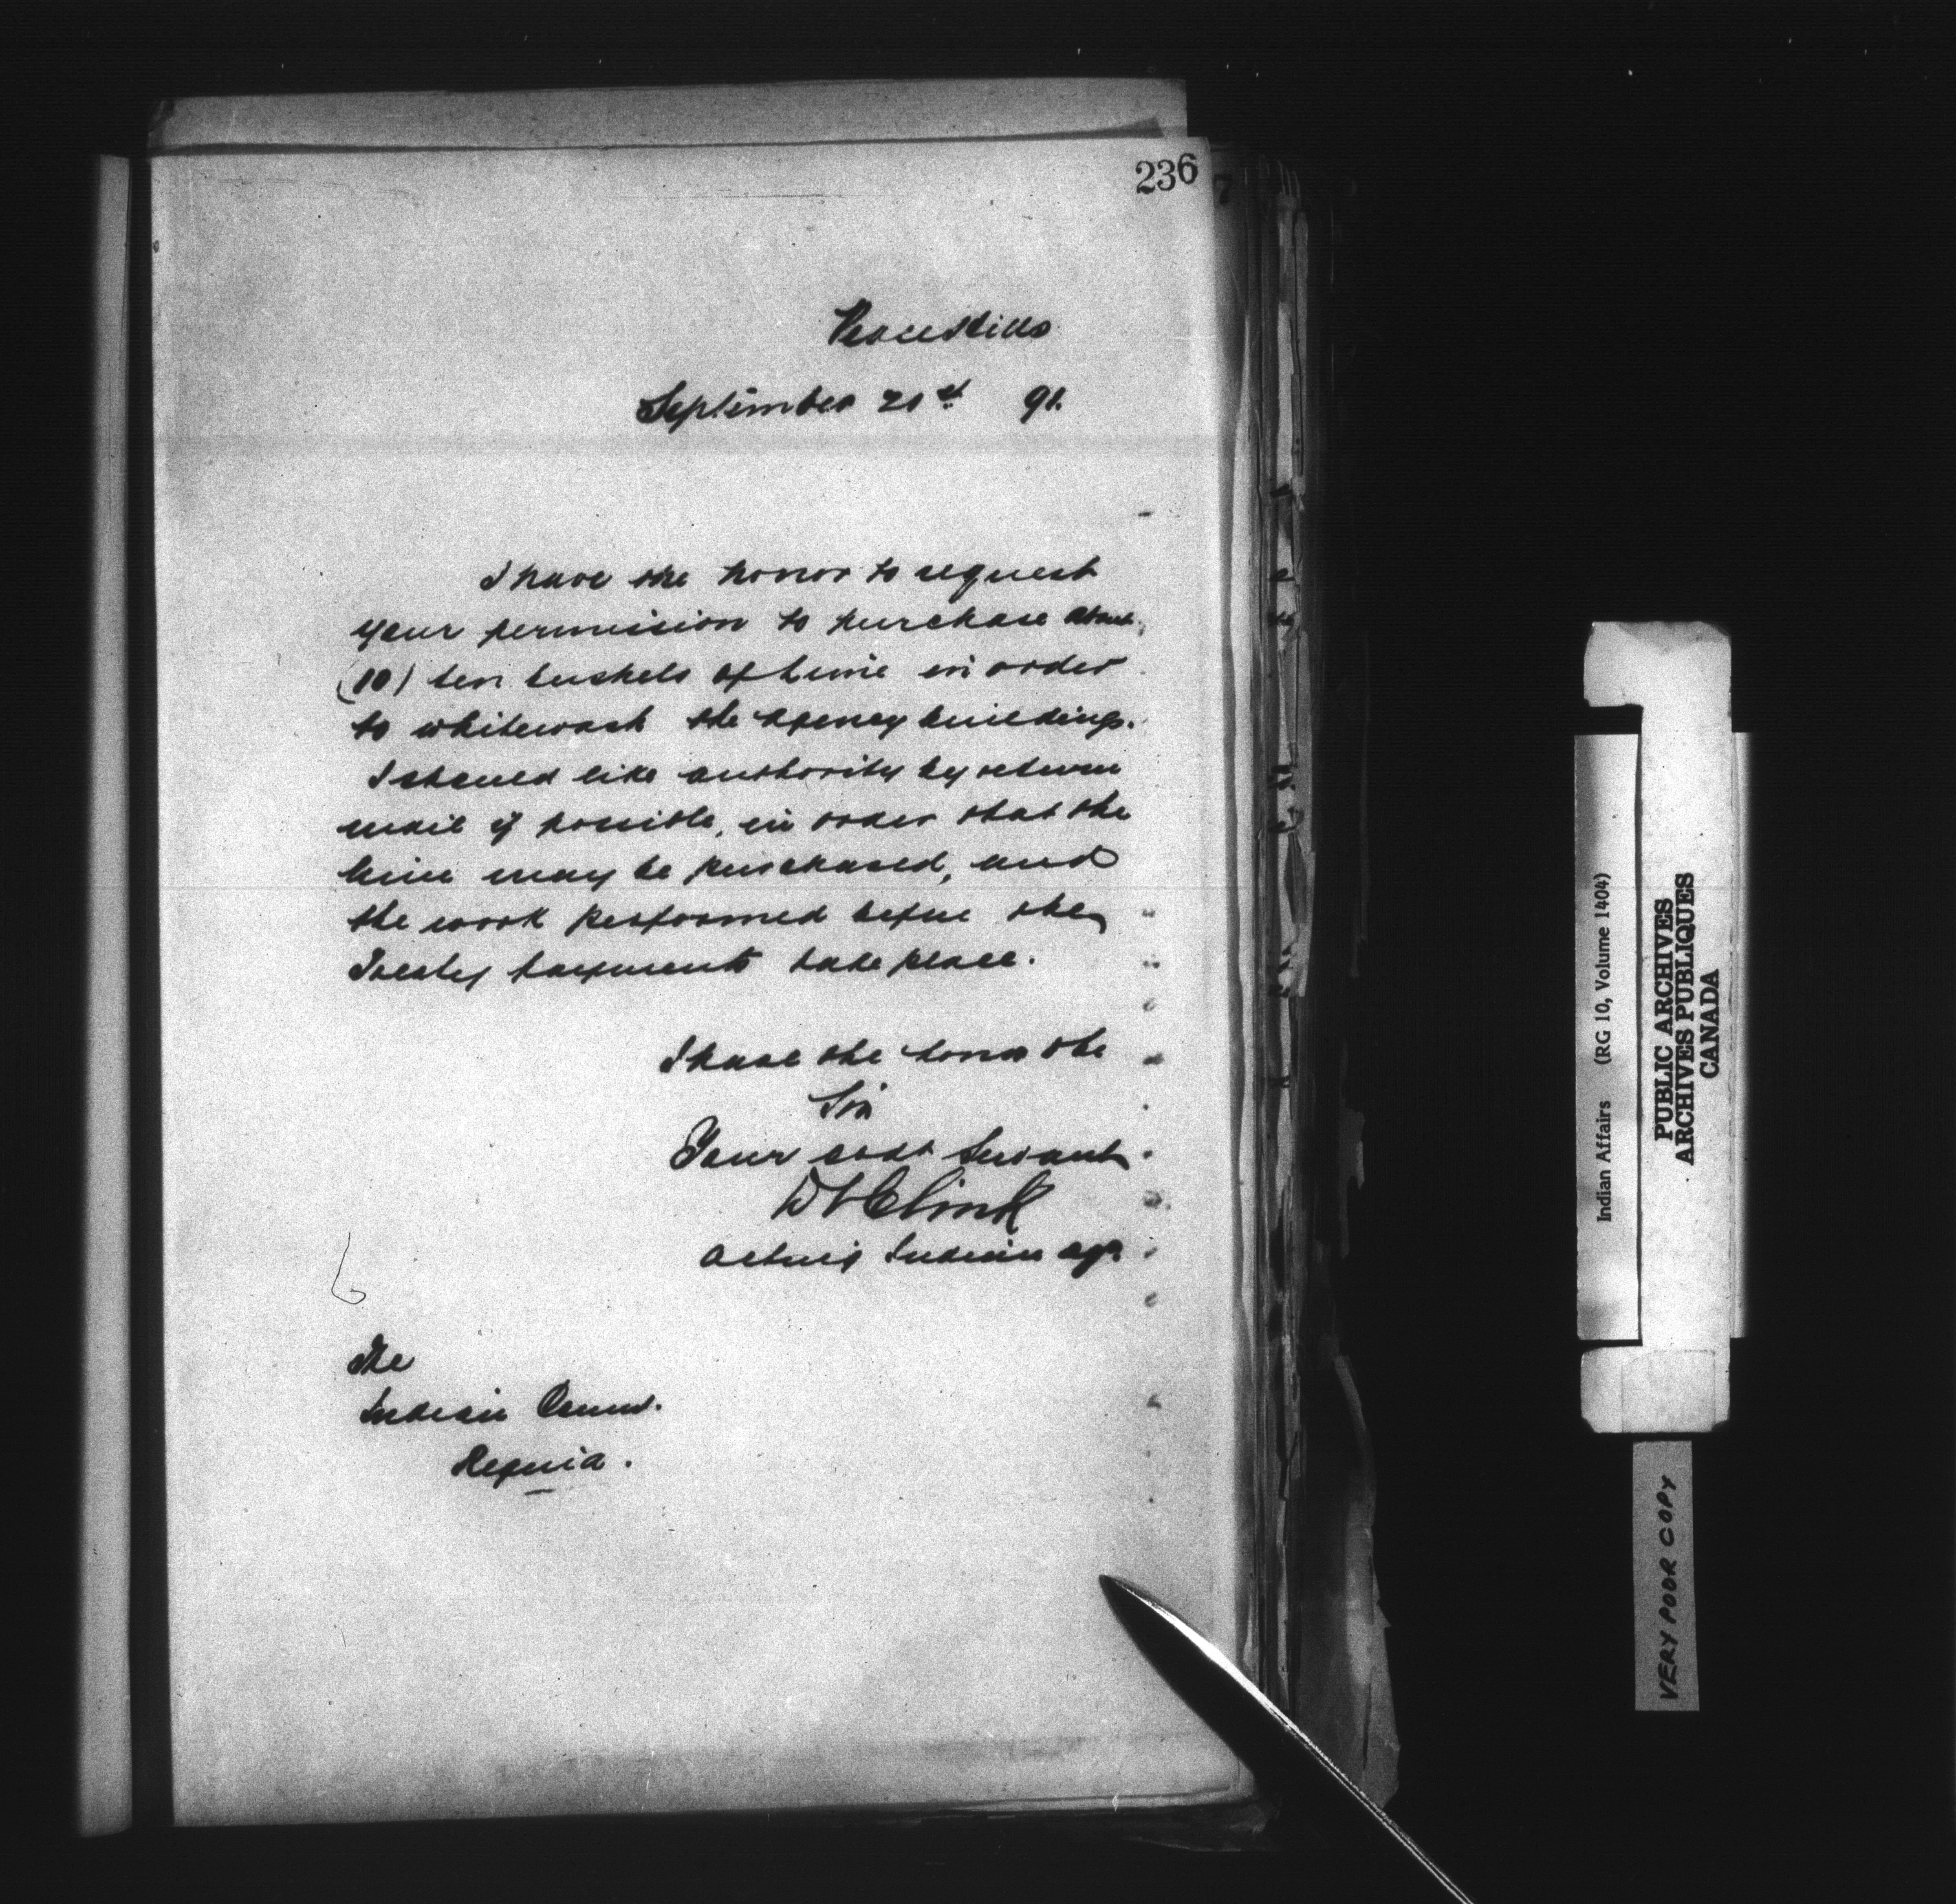 236
7
Peace Hills
September 21st 91.
I have the honor to request
your permission to purchase about
(10) ten bushels of Lime in order
to whitewash the Agency buildings.
I should like authority by return
mail if possible, in order that the
lime may be purchased, and
the work performed before the
Treaty payments take place.
I have the honor to be
Sir
Your obdt Servant
D L Clink
Acting Indian agt.
The
Indian Comr.
Regina.
Indian Affairs (RG 10, Volume 1404)
PUBLIC ARCHIVES
ARCHIVES PUBLIQUES
CANADA
VERY POOR COPY